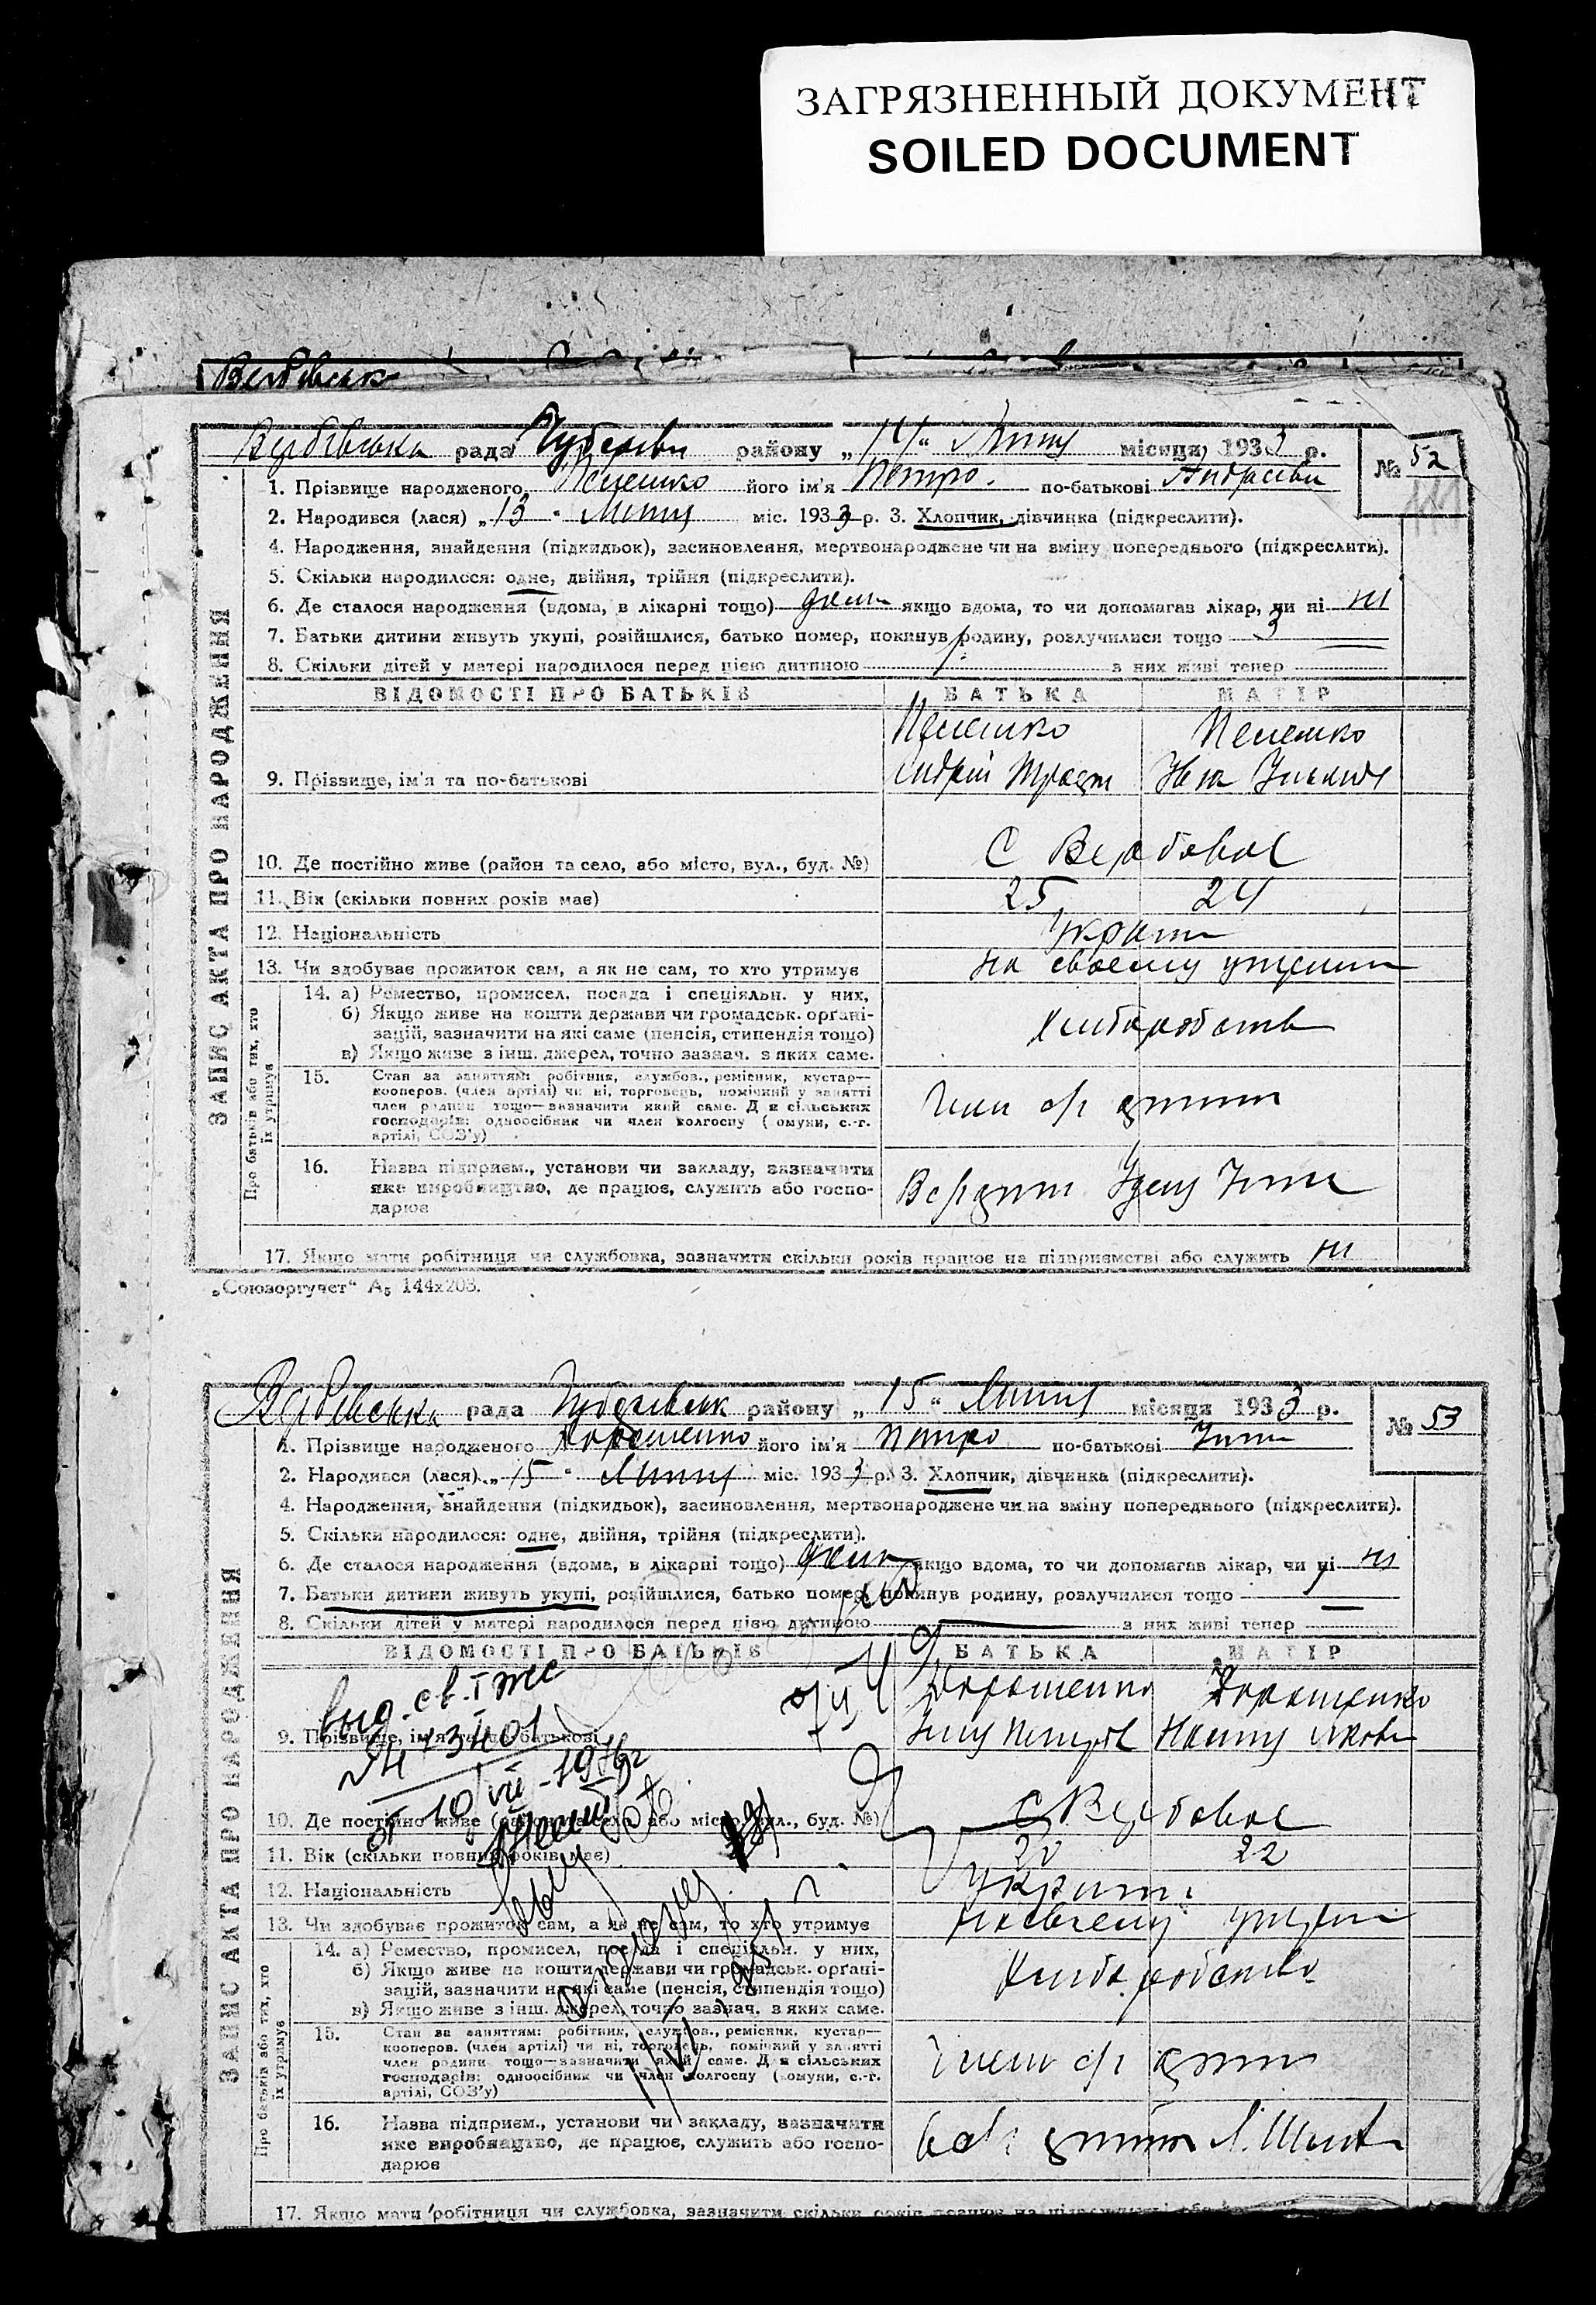 ЗАГРЯЗНЕННЫЙ ДОКУМЕНТ
SOILED DOCUMENT
Вербівськ
Вербівська рада району „14“ Липня місяця 1933 р. № 52
1. Прізвище народженого його ім'я Петро. по-батькові Андрієви
2. Народився (лася) „13“ Липня міс. 1933 р. 3. Хлопчик, дівчинка (підкреслити).
4. Народження, знайдення (підкидьок), засиновлення, мертвонароджене чи на зміну попереднього (підкреслити).
5. Скільки народилося: одне, двійня, трійня (підкреслити).
6. Де сталося народження (вдома, в лікарні тощо) дома якщо вдома, то чи допомагав лікар, чи ні ні
7. Батьки дитини живуть укупі, розійшлися, батько помер, покинув родину, розлучилися тощо
8. Скільки дітей у матері народилося перед цією дитиною з них живі тепер
ЗАПИС АКТА ПРО НАРОДЖЕННЯ
ВІДОМОСТІ ПРО БАТЬКІВ БАТЬКА МАТІР
9. Прізвище, ім'я та по-батькові Андрій
10. Де постійно живе (район та село, або місто, вул., буд. №) С Вербовое
11. Вік (скільки повних років має) 25 24
12. Національність Україн
13. Чи здобуває прожиток сам, а як не сам, то хто утримує на своему
Про батьків або тих, хто їх утримує
14. а) Ремество, промисел, посада і спеціяльн. у них,
б) Якщо живе на кошти держави чи громадськ. орґані-
зацій, зазначити на які саме (пенсія, стипендія тощо)
в) Якщо живе з інш. джерел, точно зазнач. з яких саме.
Хліборобств
15. Стан за заняттям: робітник, службов., ремісник, кустар—
кооперов. (член артілі) чи ні, торговець, помічний у занятті
член родини тощо—зазначити який саме. Для сільських
господарів: одноосібник чи член колгоспу (комуни, с.-г.
артілі, СОЗ'у)
Член с/г
16. Назва підприєм., установи чи закладу, зазначити
яке виробництво, де працює, служить або госпо-
дарює
17. Якщо мати робітниця чи службовка, зазначити скільки років працює на підприємстві або служить ні
„Союзоргучет“ А₅ 144х203.
Вербівська рада району „15“ Липня місяця 1933 р. № 53
1. Прізвище народженого Дорошенко його ім'я Петро по-батькові
2. Народився (лася) „15“ Липня міс. 1933 р. 3. Хлопчик, дівчинка (підкреслити).
4. Народження, знайдення (підкидьок), засиновлення, мертвонароджене чи на зміну попереднього (підкреслити).
5. Скільки народилося: одне, двійня, трійня (підкреслити).
6. Де сталося народження (вдома, в лікарні тощо) дома якщо вдома, то чи допомагав лікар, чи ні ні
7. Батьки дитини живуть укупі, розійшлися, батько помер, покинув родину, розлучилися тощо
8. Скільки дітей у матері народилося перед цією дитиною з них живі тепер
ЗАПИС АКТА ПРО НАРОДЖЕННЯ
ВІДОМОСТІ ПРО БАТЬКІВ БАТЬКА МАТІР
Дорошенко Дорошенко
9. Прізвище, ім'я та по-батькові
10. Де постійно живе (район та село, або місто, вул., буд. №) с Вербовое
11. Вік (скільки повних років має) 20 22
12. Національність Україн
13. Чи здобуває прожиток сам, а як не сам, то хто утримує
Про батьків або тих, хто їх утримує
14. а) Ремество, промисел, посада і спеціяльн. у них,
б) Якщо живе на кошти держави чи громадськ. орґані-
зацій, зазначити на які саме (пенсія, стипендія тощо)
в) Якщо живе з інш. джерел, точно зазнач. з яких саме.
Хліборобство
15. Стан за заняттям: робітник, службов., ремісник, кустар—
кооперов. (член артілі) чи ні, торговець, помічний у занятті
член родини тощо—зазначити який саме. Для сільських
господарів: одноосібник чи член колгоспу (комуни, с.-г.
артілі, СОЗ'у)
Член с/г
16. Назва підприєм., установи чи закладу, зазначити
яке виробництво, де працює, служить або госпо-
дарює
17. Якщо мати робітниця чи службовка, зазначити скільки років